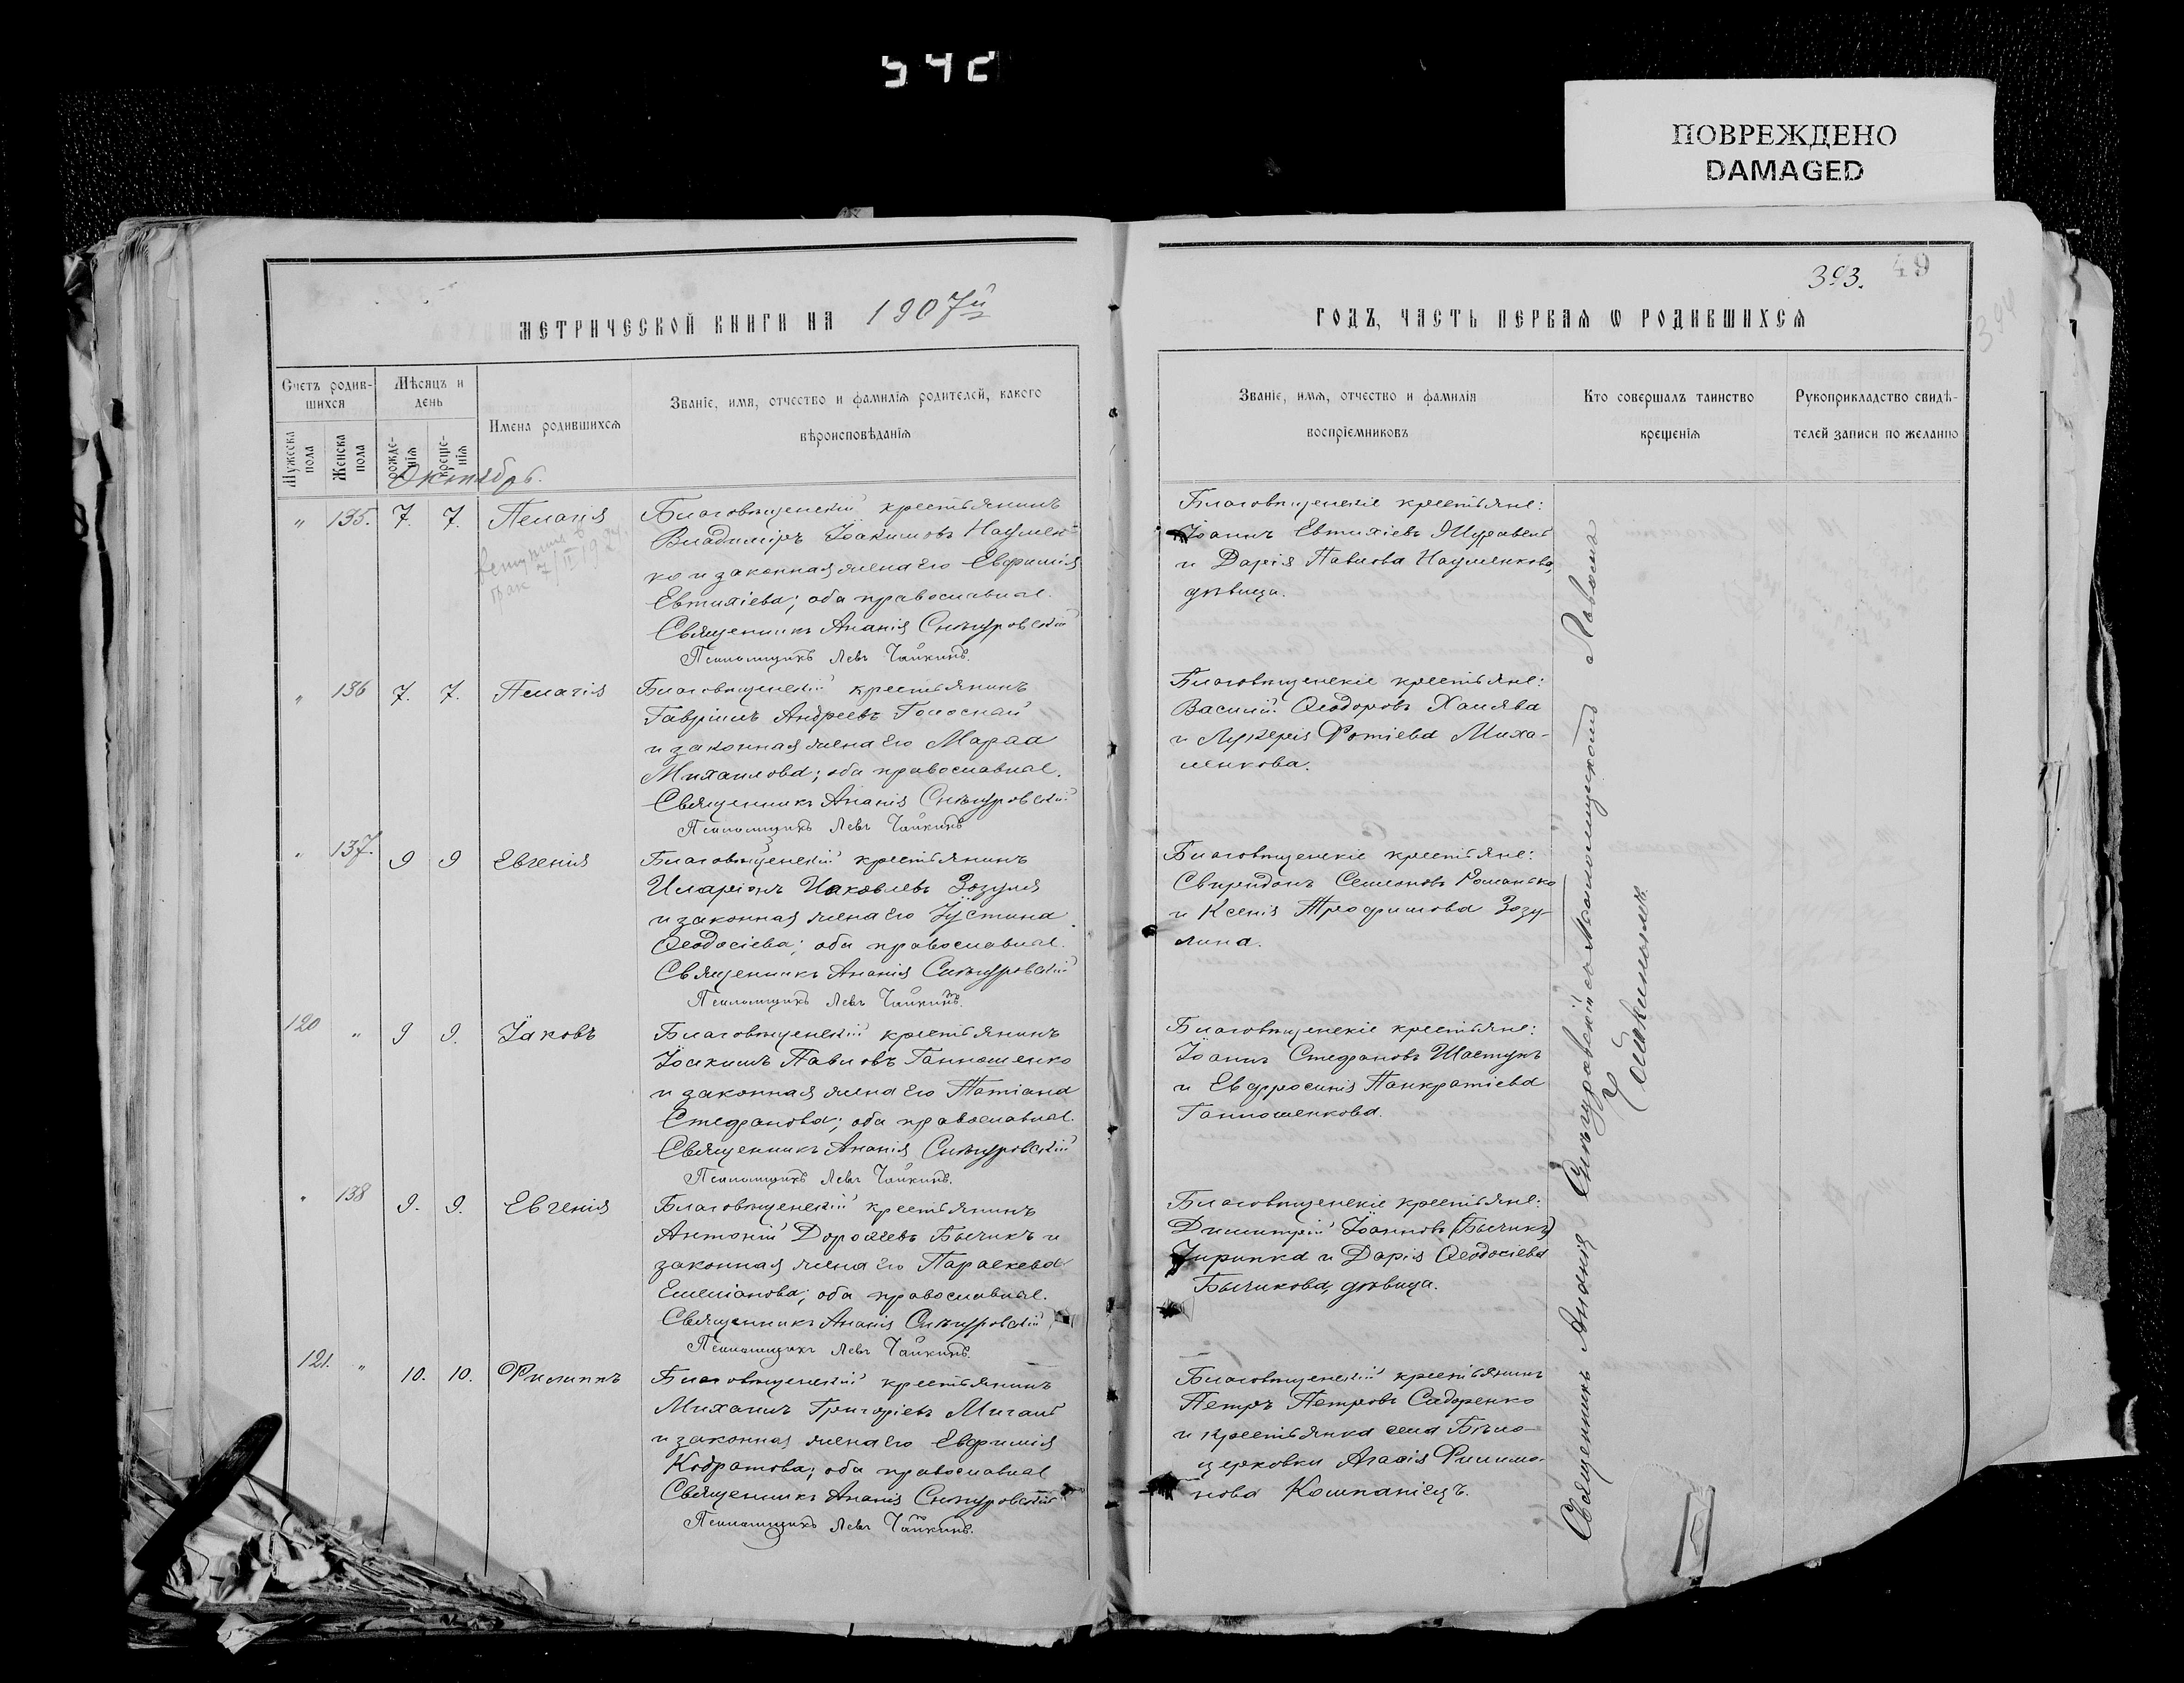 ПОВРЕЖДЕНО
DAMAGED
МЕТРИЧЕСКОЙ КНИГИ НА 1907й
Счетъ родив-
шихся
Мужеска пола
Женска пола
Мѣсяцъ и
день
рожде-
нія
креще-
нія
Имена родившихся
Званіе, имя, отчество и фамилія родителей, какого
вѣроисповѣданія
Октябрь.
" 135. 7. 7. Пелагія
Благовѣщенскій крестьянинъ
Владиміръ Іоакимовъ Наумен-
ко и законная жена его Евфимія
Евтихіева; оба православные.
Священникъ Ананія Снѣгуровскій
Псаломщикъ Левъ Чайкинъ.
" 136 7. 7. Пелагія
Благовѣщенскій крестьянинъ
Гавріилъ Андреевъ Голоснай
и законная жена его Марѳа
Михаилова; оба православные.
Священникъ Ананія Снѣгуровскій
Псаломщикъ Левъ Чайкинъ
" 137. 9 9 Евгенія
Благовѣщенскій крестьянинъ
Иларіонъ Иаковлевъ Зозуля
и законная жена его Іустина
Ѳеодосіева; оба православные.
Священникъ Ананія Снѣгуровскій
Псаломщикъ Левъ Чайкинъ.
120 " 9 9. Іаковъ
Благовѣщенскій крестьянинъ
Іоакимъ Павловъ Ганношенко
и законная жена его Татіана
Стефанова; оба православные.
Священникъ Ананія Снѣгуровскій
Псаломщикъ Левъ Чайкинъ.
" 138 9. 9. Евгенія
Благовѣщенскій крестьянинъ
Антоній Дороѳеевъ Бычикъ и
законная жена его Параскева
Емеліанова; оба православные.
Священникъ Ананія Снѣгуровскій
Псаломщикъ Левъ Чайкинъ.
121. " 10. 10. Филиппъ
Благовѣщенскій крестьянинъ
Михаилъ Григоріевъ Мигаль
и законная жена его Евфимія
Кодратова; оба православные
Священникъ Ананія Снѣгуровскій
Псаломщикъ Левъ Чайкинъ.
393. 49
394
ГОДЪ, ЧАСТЬ ПЕРВАЯ Ѡ РОДИВШИХСЯ
Званіе, имя, отчество и фамилія
воспріемниковъ
Кто совершалъ таинство
крещенія
Рукоприкладство свидѣ-
телей записи по желанію
Благовѣщенскіе крестьяне:
Іоаннъ Евтихіевъ Журавель
и Дарія Павлова Науменкова,
дѣвица.
Благовѣщенскіе крестьяне:
Василій Ѳеодоровъ Халява
и Лукерія Фотіева Миха-
ленкова.
Благовѣщенскіе крестьяне:
Свиридонъ Семеновъ Романько
и Ксенія Трофимова Зозу-
лина.
Благовѣщенскіе крестьяне:
Іоаннъ Стефановъ Шастунъ
и Евфросинія Панкратіева
Ганношенкова.
Благовѣщенскіе крестьяне:
Димитрій Іоанновъ (Бычикъ)
и Дарія Ѳеодосіева
Бычикова, дѣвица.
Благовѣщенскій крестьянинъ
Петръ Петровъ Сидоренко
и крестьянка села Бѣло-
церковки Агафія Филимо-
нова Компаніецъ.
Священникъ Ананія Снѣгуровскій съ псаломщикомъ Львомъ
Чайкинымъ.